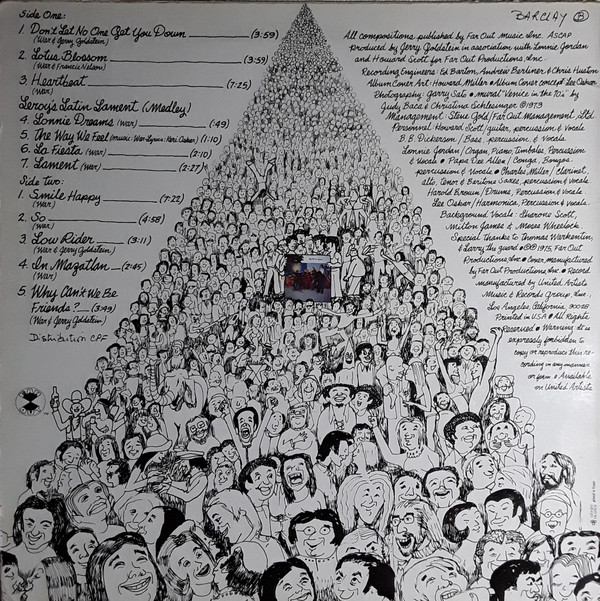 Side One:
1. Don't Let No One Get You Down (3:59)
(War & Jerry Goldstein)
2. Lotus Blossom (3:59)
(War & Francis Nelson)
3. Heartbeat (7:25)
(War)
Leroy's Latin Lament (Medley)
4. Lonnie Dreams (War) (:49)
5. The Way We Feel (music: War-Lyrics: Keri Oskar) (1:10)
6. La Fiesta (War) (2:10)
7. Lament (War) (2:27)
Side Two:
1. Smile Happy (7:22)
(War)
2. So (4:58)
(War)
3. Low Rider (3:11)
(War & Jerry Goldstein)
4. In Mazatlan (2:45)
(War)
5. Why Can't We Be
Friends? (3:49)
(War & Jerry Goldstein)
Distribution CPF
BARCLAY B
All compositions published by Far Out Music, Inc. ASCAP
Produced by Jerry Goldstein in association with Lonnie Jordan
and Howard Scott for Far Out Productions, Inc.
Recording Engineers: Ed Barton, Andrew Berliner & Chris Huston
Album Cover Art: Howard Miller • Album Cover Concept: Lee Oskar,
Photography: Garry Sato • mural "Venice in the 70's" by
Judy Baca & Christina Schlesinger ©1973
Management: Steve Gold/Far Out Management, Ltd.
Personnel Howard Scott/guitar, percussion & Vocals
B.B. Dickerson/Bass, percussion, & Vocals
Lonnie Jordan/Organ, Piano, timbales, Percussion
& Vocals • Papa Dee Allen/Conga, Bongos,
percussion & Vocals • Charles Miller/Clarinet,
alto, Tenor & Baritone Saxes, percussion & Vocals
Harold Brown/Drums, Percussion & Vocals
Lee Oskar/Harmonica, Percussion & Vocals
Background Vocals: Sherone Scott,
Milton James & Moses Wheelock
Special thanks to Thomas Warkentin,
& Larry the guard • ©℗ 1975, Far Out
Productions, Inc • Cover manufactured
by Far Out Productions, Inc • Record
manufactured by United Artists
Music & Records Group, Inc.,
Los Angeles, California, 90028
Printed in USA • All Rights
Reserved • Warning: It is
expressly forbidden to
copy or reproduce this re-
cording in any manner
or form • Available
on United Artists